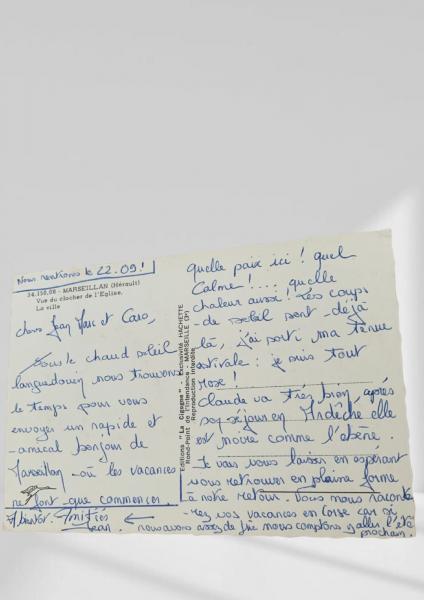 Nous rentrons le 22.09!
34.150.06 - MARSEILLAN (Hérault)
Vue du clocher de l'Église.
La ville
chers Jean Marc et Caro,
Sous le chaud soleil
languedocien nous trouvons
le temps pour vous
envoyer un rapide et
amical bonjour de
Marseillan - où les vacances
ne font que commencer
A bientôt. Amitiés
Jean
Editions "La Cigogne" - Exclusivité HACHETTE
Rond-Point de l'Intendance - MARSEILLE (P)
Reproduction interdite
quelle paix ici! quel
Calme!... quelle
chaleur aussi! Les coups
de soleil sont déjà
là, j'ai sorti ma tenue
estivale: je suis tout
rose!
Claude va très bien, après
son séjour en Ardèche elle
est noire comme l'ébène.
Je vais vous laisser en espérant
vous retrouver en pleine forme
à notre retour. Vous nous raconte
-rez vos vacances en Corse car si
nous avons assez de nous comptons y aller l'été
prochain.